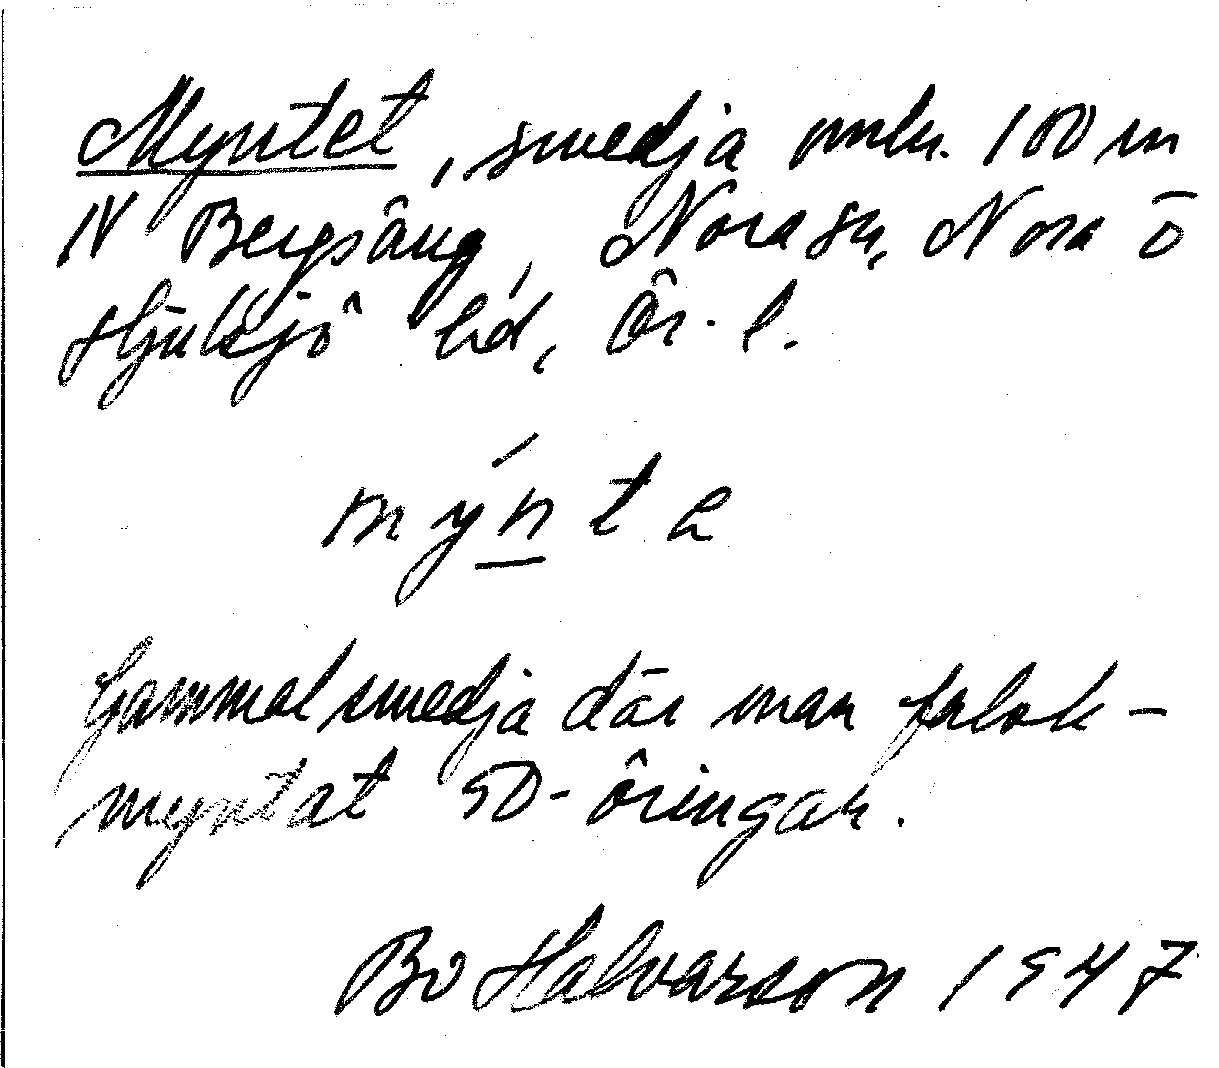 Myntet, smedja omkr. 100 m
N Bergsäng, Nora sn, Nora ō
Hjulsjö hd, Ör. l.
mýnte
Gammal smedja där man falsk-
myntat 50-öringar.
Bo Halvarson 1947